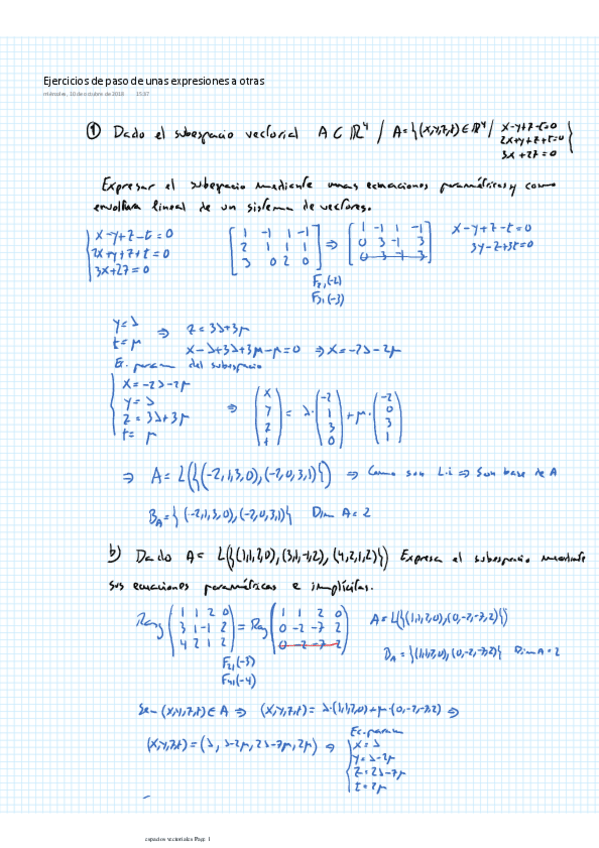 Ejercicios de paso de unas expresiones a otras
miércoles, 10 de octubre de 2018 15:37
① Dado el subespacio vectorial A ⊂ ℝ⁴ / A = {(x,y,z,t) ∈ ℝ⁴ / x-y+z-t=0
2x+y+z+t=0
3x+2z=0 }
Expresar el subespacio mediante unas ecuaciones paramétricas y como
envoltura lineal de un sistema de vectores.
x-y+z-t=0
2x+y+z+t=0
3x+2z=0
[1 -1 1 -1
2 1 1 1
3 0 2 0] ⇒ [1 -1 1 -1
0 3 -1 3
0 3 -1 3]
x-y+z-t=0
3y-z+3t=0
F₂₁(-2)
F₃₁(-3)
y=λ
t=μ ⇒ z=3λ+3μ
x-λ+3λ+3μ-μ=0 ⇒ x=-2λ-2μ
Ec. param del subespacio
x=-2λ-2μ
y=λ
z=3λ+3μ
t=μ
⇒ (x y z t) = λ·(-2 1 3 0) + μ·(-2 0 3 1)
⇒ A = L({(-2,1,3,0),(-2,0,3,1)}) ⇒ Como son L.i ⇒ Son base de A
B_A = {(-2,1,3,0),(-2,0,3,1)} Dim A = 2
b) Dado A = L({(1,1,2,0),(3,1,-1,2),(4,2,1,2)}) Expresa el subespacio mediante
sus ecuaciones paramétricas e implícitas.
Rang (1 1 2 0
3 1 -1 2
4 2 1 2) = Rang (1 1 2 0
0 -2 -7 2
0 -2 -7 2)
A = L({(1,1,2,0),(0,-2,-7,2)})
B_A = {(1,1,2,0),(0,-2,-7,2)} Dim A = 2
F₂₁(-3)
F₄₁(-4)
(x,y,z,t) ∈ A ⇒ (x,y,z,t) = λ·(1,1,2,0)+μ·(0,-2,-7,2) ⇒
(x,y,z,t) = (λ, λ-2μ, 2λ-7μ, 2μ) ⇒
Ec. param
x=λ
y=λ-2μ
z=2λ-7μ
t=2μ
espacios vectoriales Page 1